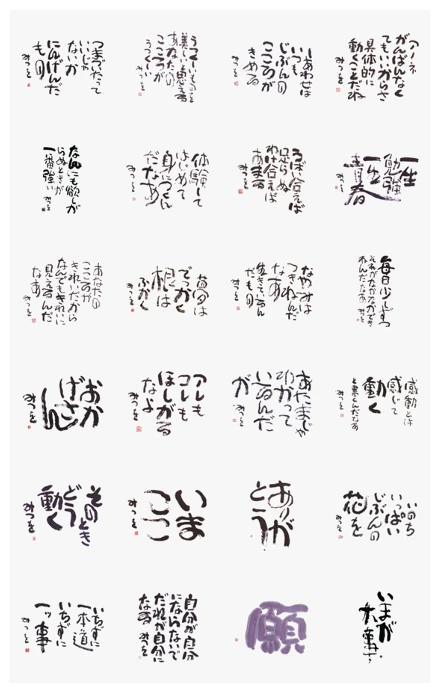 つまづいたって
いいじゃ
ないか
にんげんだ
もの
みつを
うつくしいものを
美しいと思える
あなたの
こころが
うつくしい
みつを
しあわせは
いつも
じぶんの
こころが
きめる
みつを
アノネ
がんばんなく
てもいいからさ
具体的に
動くことだね
みつを
なんにも欲しが
らぬときが
一番強い
みつを
体験して
はじめて
身につくん
だなあ
みつを
うばい合えば
足らぬ
わけ合えば
あまる
みつを
一生
勉強
一生
青春
みつを
あなたの
こころが
きれいだから
なんでもきれいに
見えるんだ
なあ
みつを
夢は
でっかく
根は
ふかく
みつを
なやみは
つきねんだ
なあ
生きているん
だもの
みつを
毎日少しずつ
それがなかなかでき
ねんだなあ
みつを
おか
げさん
みつを
アレも
コレも
ほしがる
なよ
みつを
あたまじゃ
わかって
いるんだ
が
みつを
感動とは
感じて
動く
と書くんだなあ
みつを
そのとき
どう
動く
みつを
いま
ここ
みつを
ありが
とう
いのち
いっぱい
じぶんの
花を
みつを
いちずに
一本道
いちずに
一ッ事
みつを
自分が自分
にならないで
だれが自分に
なる
みつを
願
いまが
大事